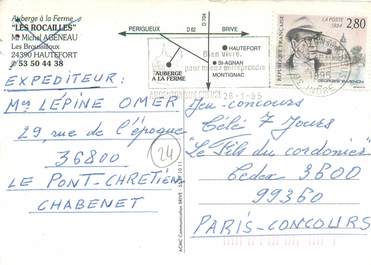 Auberge à la Ferme
"LES ROCAILLES"
Mr Michel AGENEAU
Les Broussilloux
24390 HAUTEFORT
53 50 44 38
PERIGUEUX
D 62
D 704
BRIVE
HAUTEFORT
St-AGNAN
MONTIGNAC
AUBERGE
A LA FERME
Bien vivre,
pour mieux entreprendre
26-1-95
REPUBLIQUE FRANÇAISE
LA POSTE
1994
2,80
EXPEDITEUR:
Mr LÉPINE OMER
29 rue de l'époque
36800
LE PONT-CHRETIEN
CHABENET
24
Jeu-concours
Télé 7 Jours
"Le Fils du cordonier"
Cedex 3600
99360
PARIS-CONCOURS